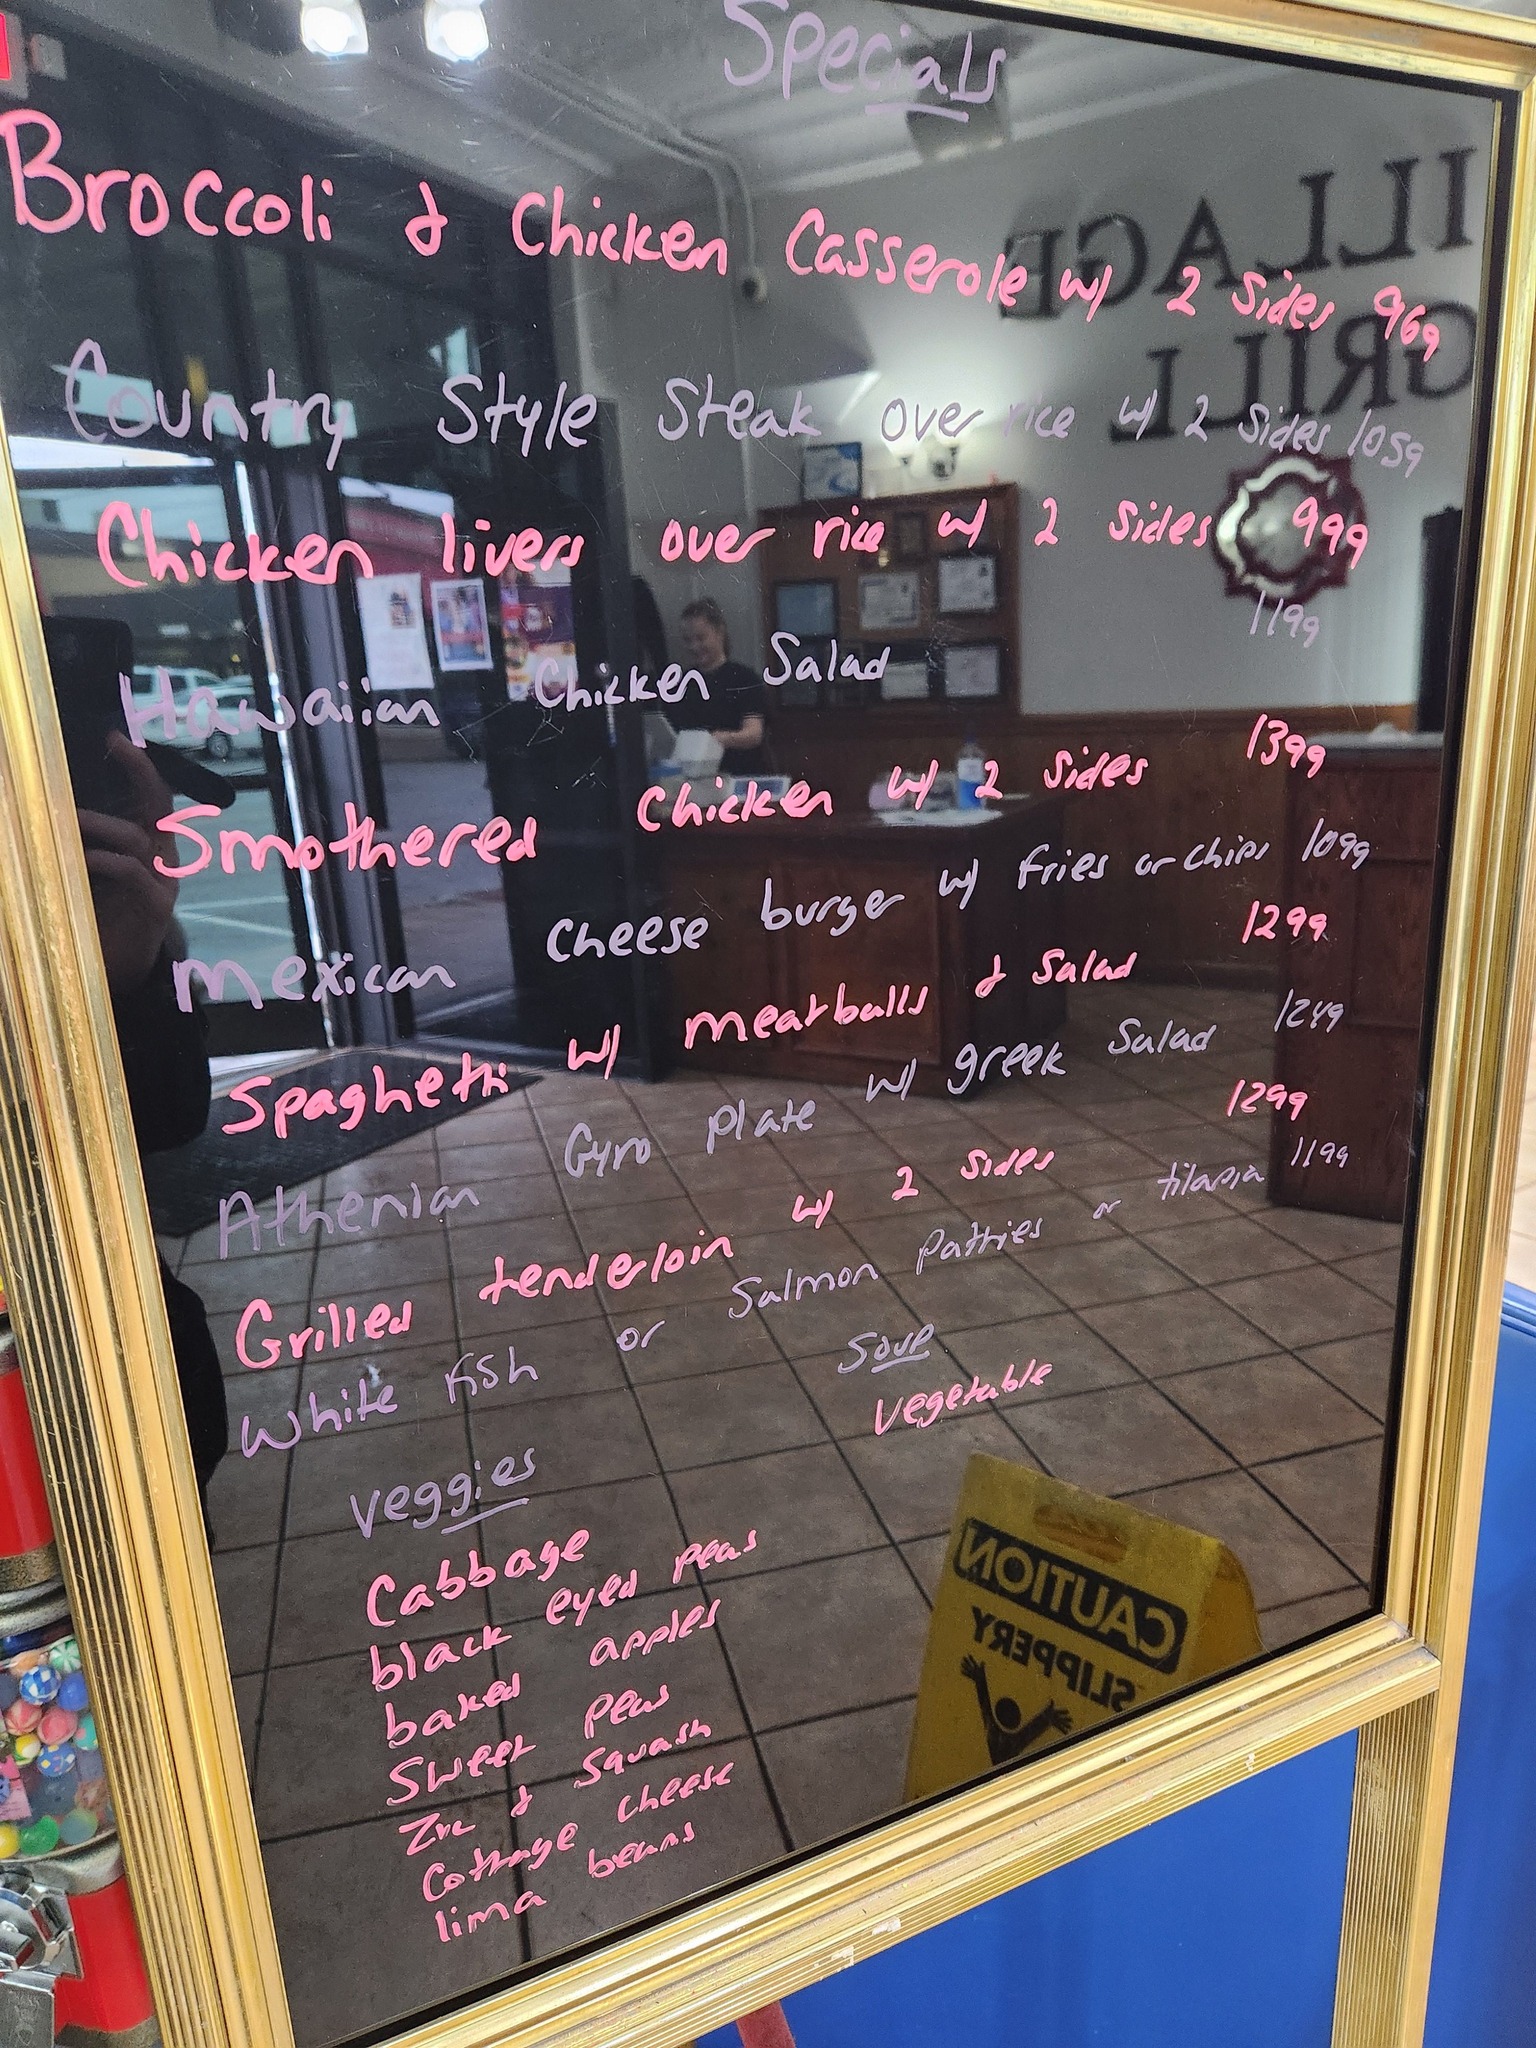 Specials
Broccoli & Chicken Casserole w/ 2 Sides 969
Country Style Steak over rice w/ 2 Sides 1059
Chicken livers over rice w/ 2 Sides 999
Hawaiian Chicken Salad 1199
Smothered Chicken w/ 2 Sides 1399
Mexican Cheese burger w/ fries or chips 1099
Spaghetti w/ meatballs & Salad 1299
Athenian Gyro plate w/ greek Salad 1249
Grilled tenderloin w/ 2 Sides 1299
White fish or Salmon Patties or tilapia 1199
Soup
Vegetable
Veggies
Cabbage
black eyed peas
baked apples
Sweet peas
& Squash
Cottage cheese
lima beans
ILLAGE
GRILL
CAUTION
SLIPPERY